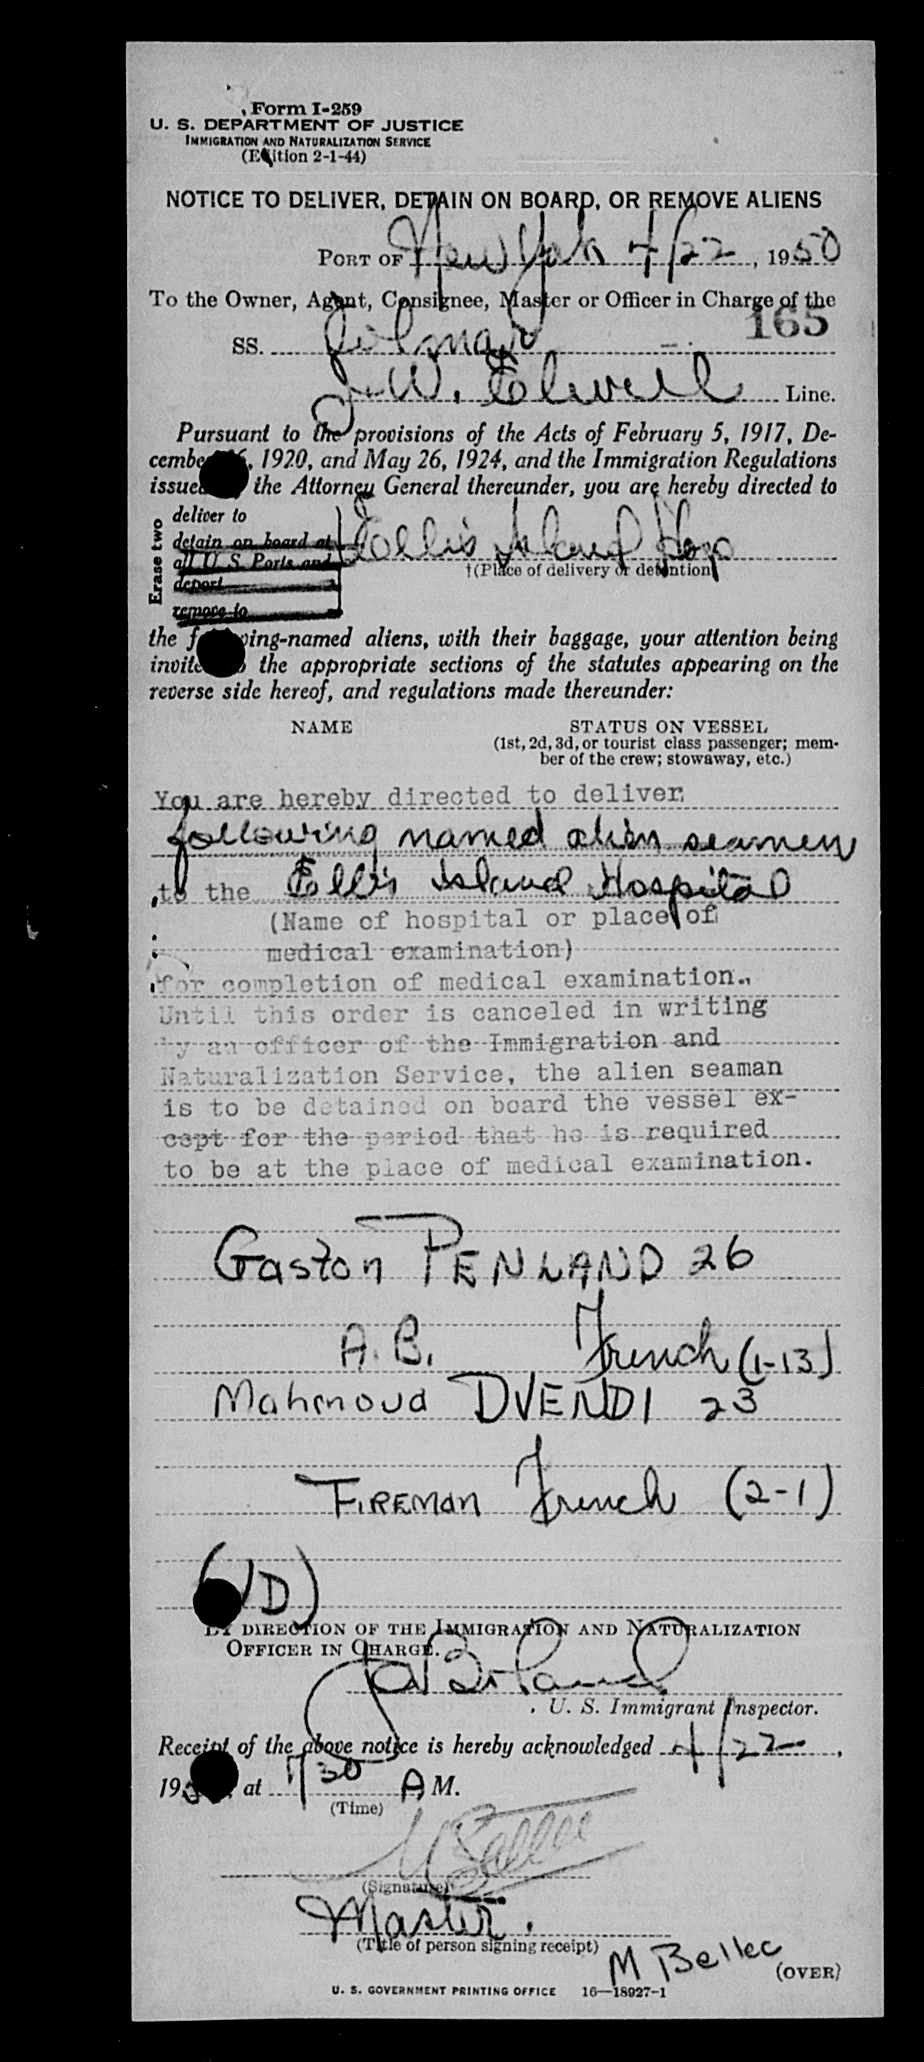 Form I-259
U. S. DEPARTMENT OF JUSTICE
IMMIGRATION AND NATURALIZATION SERVICE
(Edition 2-1-44)
NOTICE TO DELIVER, DETAIN ON BOARD, OR REMOVE ALIENS
PORT OF New York 4/22, 1950
To the Owner, Agent, Consignee, Master or Officer in Charge of the
165
SS. Jolmar
J. W. Elwell Line.
Pursuant to the provisions of the Acts of February 5, 1917, De-
cember 26, 1920, and May 26, 1924, and the Immigration Regulations
issued by the Attorney General thereunder, you are hereby directed to
Erase two
deliver to
detain on board at
all U S Ports and
deport
remove to
Ellis Island Hosp
†(Place of delivery or detention)
the following-named aliens, with their baggage, your attention being
invited to the appropriate sections of the statutes appearing on the
reverse side hereof, and regulations made thereunder:
NAME STATUS ON VESSEL
(1st, 2d, 3d, or tourist class passenger; mem-
ber of the crew; stowaway, etc.)
You are hereby directed to deliver
following named alien seamen
to the Ellis Island Hospital
(Name of hospital or place of
medical examination)
for completion of medical examination.
Until this order is canceled in writing
by an officer of the Immigration and
Naturalization Service, the alien seaman
is to be detained on board the vessel ex-
cept for the period that he is required
to be at the place of medical examination.
Gaston PENLAND 26
A.B. French (1-13)
Mahmoud DVENDI 23
FIREMAN French (2-1)
(VD)
BY DIRECTION OF THE IMMIGRATION AND NATURALIZATION
OFFICER IN CHARGE.
U. S. Immigrant Inspector.
Receipt of the above notice is hereby acknowledged 4/22,
1950, at 7/30 A M.
(Time)
M Bellec
(Signature)
Master.
(Title of person signing receipt)
M Bellec
(OVER)
U. S. GOVERNMENT PRINTING OFFICE 16—18927-1